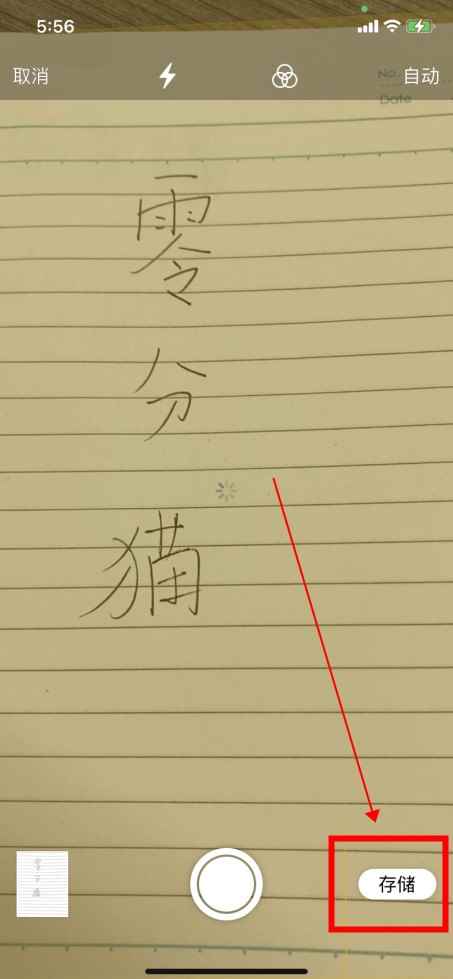 5:56
取消
自动
No.
Date
零
分
猫
存储